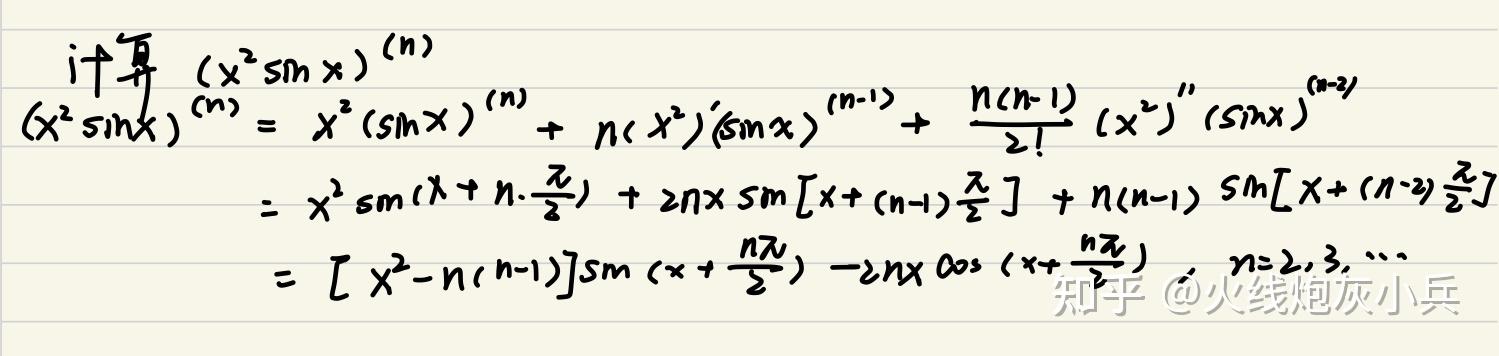 计算 (x² sin x)⁽ⁿ⁾
(x² sin x)⁽ⁿ⁾ = x² (sin x)⁽ⁿ⁾ + n(x²)′(sin x)⁽ⁿ⁻¹⁾ + n(n-1)/2! (x²)″ (sin x)⁽ⁿ⁻²⁾
= x² sin(x + n·π/2) + 2nx sin[x + (n-1)π/2] + n(n-1) sin[x + (n-2)π/2]
= [x² - n(n-1)] sin(x + nπ/2) - 2nx cos(x + nπ/2), n=2,3,⋯
知乎 @火线炮灰小兵